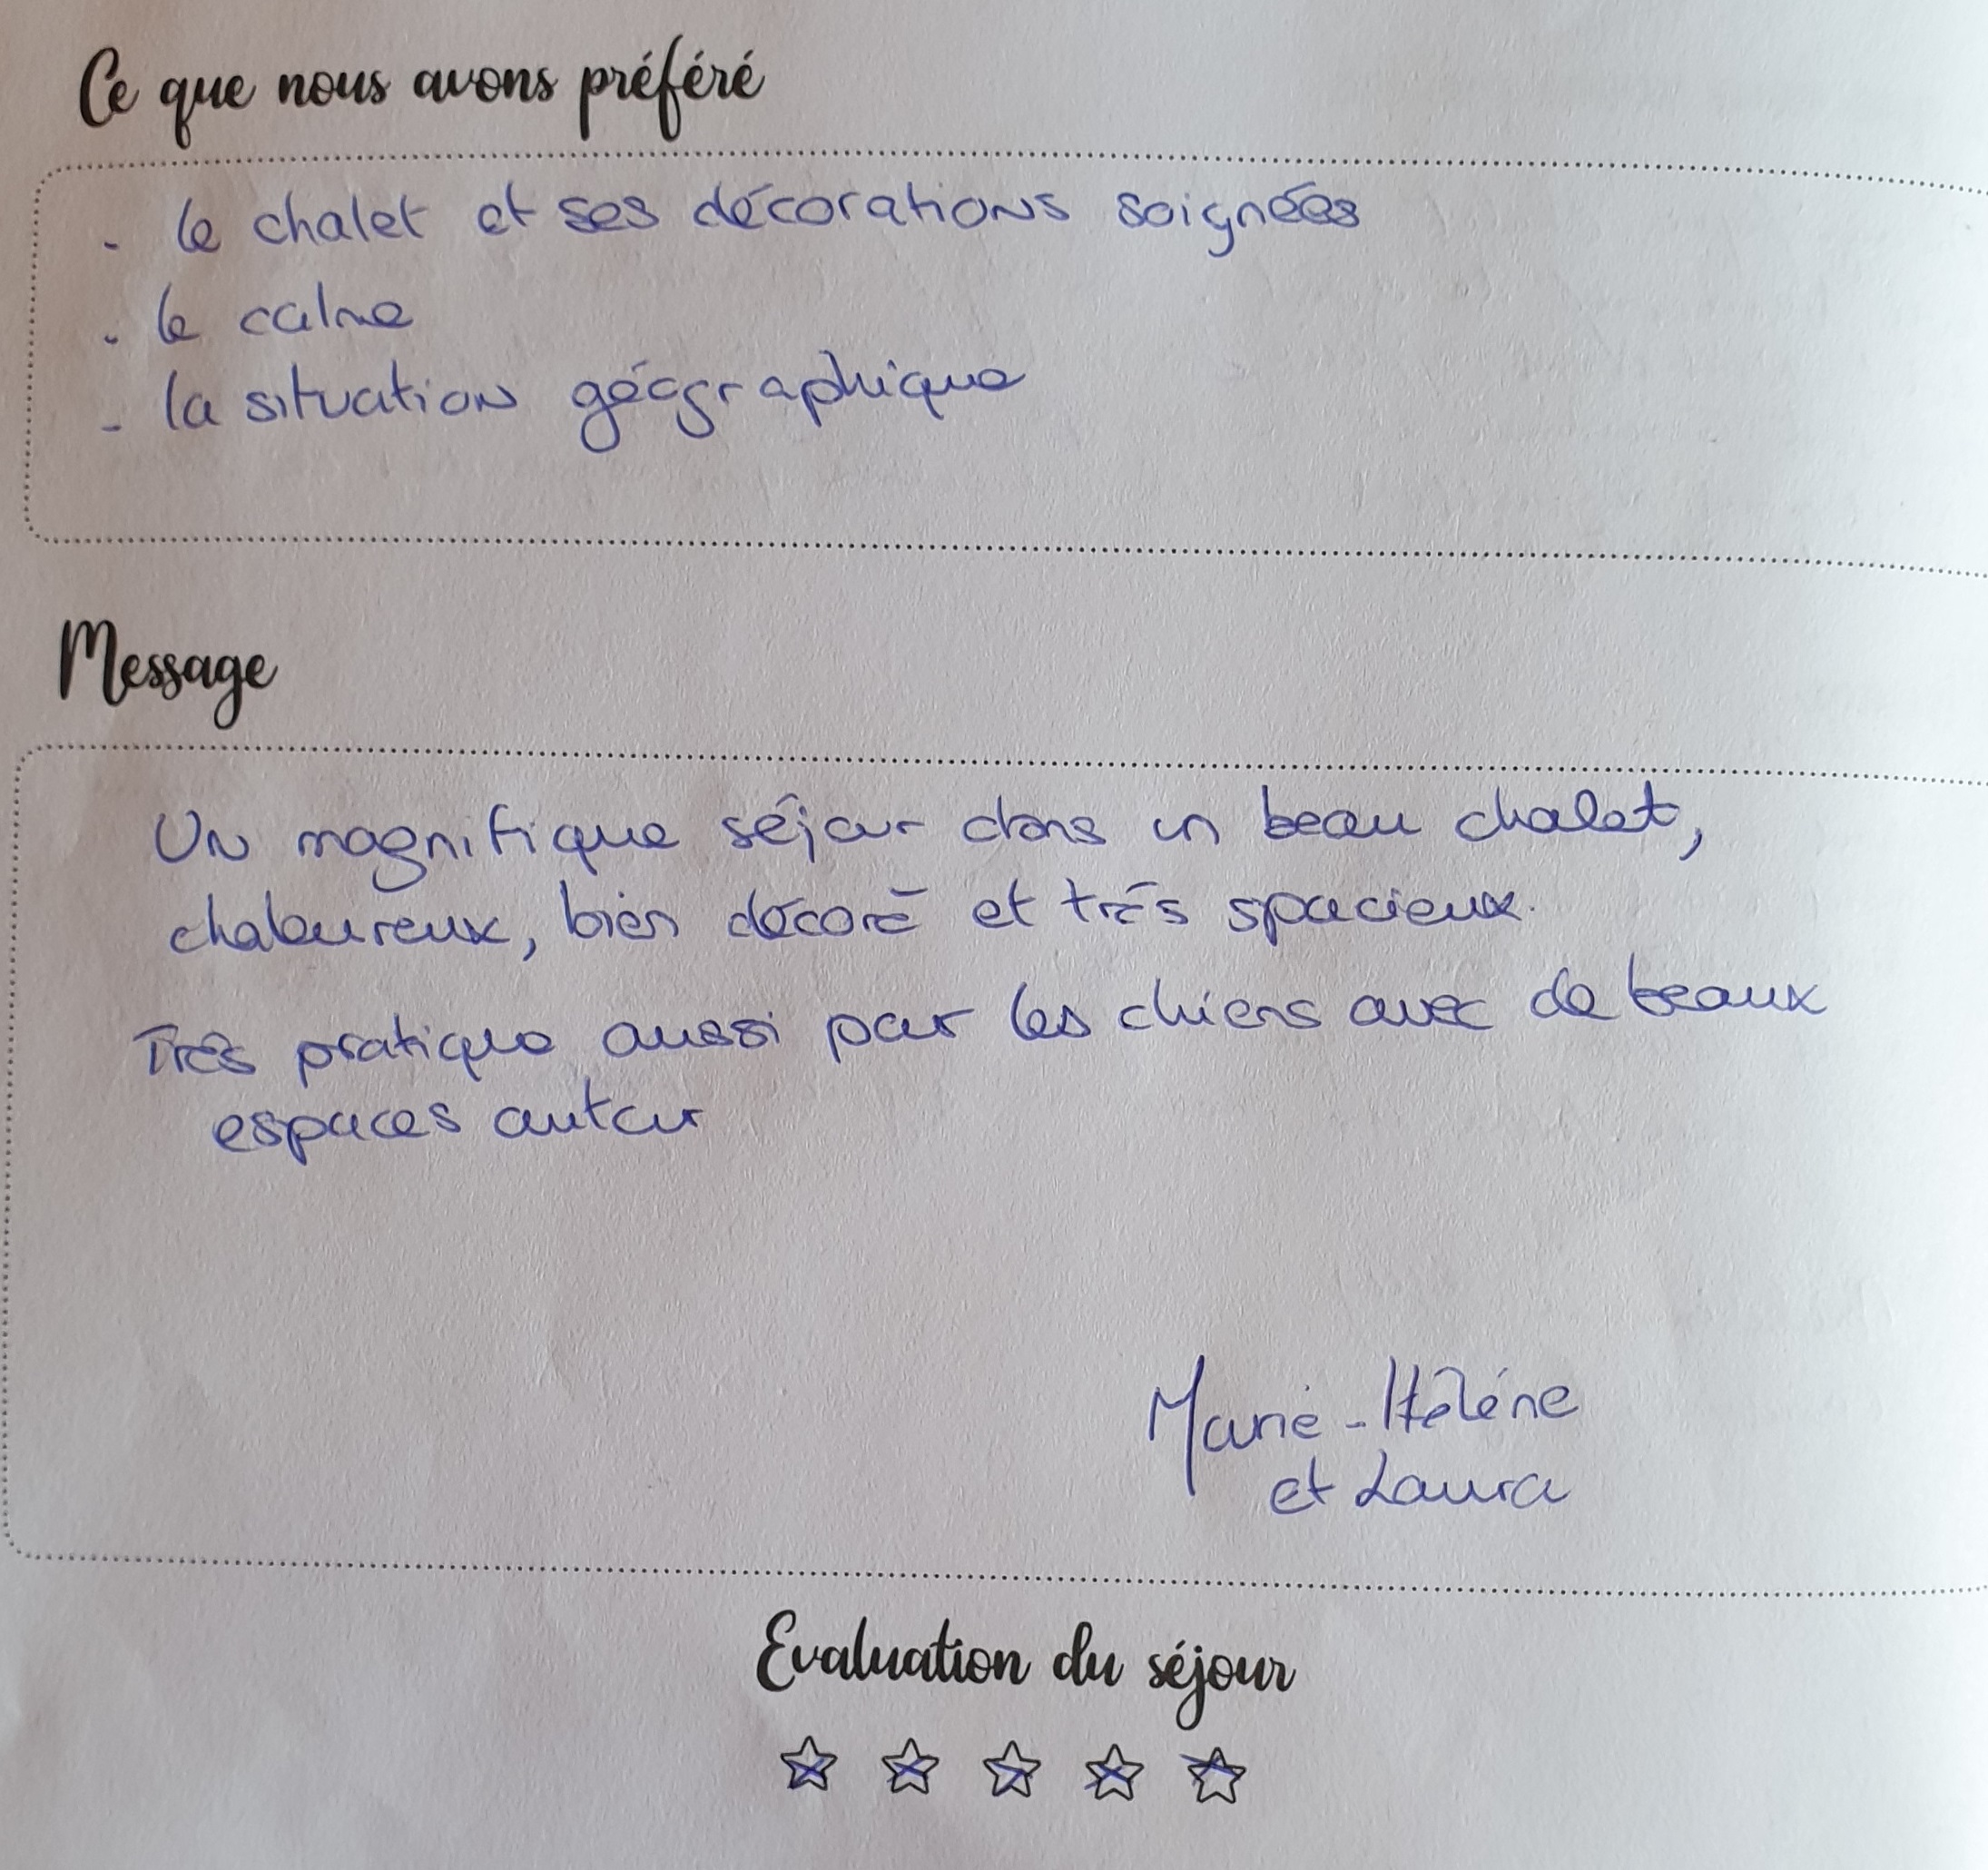 Ce que nous avons préféré
- le chalet et ses décorations soignées
- le calme
- la situation géographique
Message
Un magnifique séjour dans un beau chalet,
chaleureux, bien décoré et très spacieux.
Très pratique aussi pour les chiens avec de beaux
espaces autour
Marie-Hélène
et Laura
Evaluation du séjour